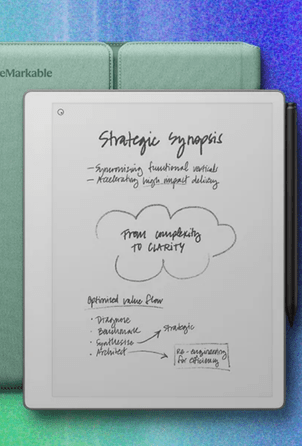 eMarkable
Strategic Synopsis
— Synchronising functional verticals
— Accelerating high impact delivery
From complexity
TO CLARITY
Optimised value flow
• Diagnose
• Benchmark
• Synthesise
• Architect
Strategic
Re-engineering
for efficiency